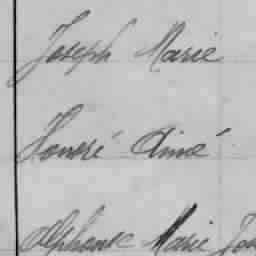 Joseph Marie
Honoré Aimé
Alphonse Marie